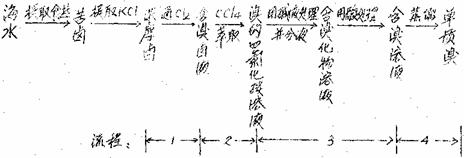 海水 提取食盐 苦卤 提取KCl 浓厚卤 通Cl₂ 含溴卤液 CCl₄ 萃取 溴的四氯化碳溶液 用碱液处理 并分液 含溴化物溶液 用酸处理 含溴溶液 蒸馏 单质溴
流程： 1 2 3 4